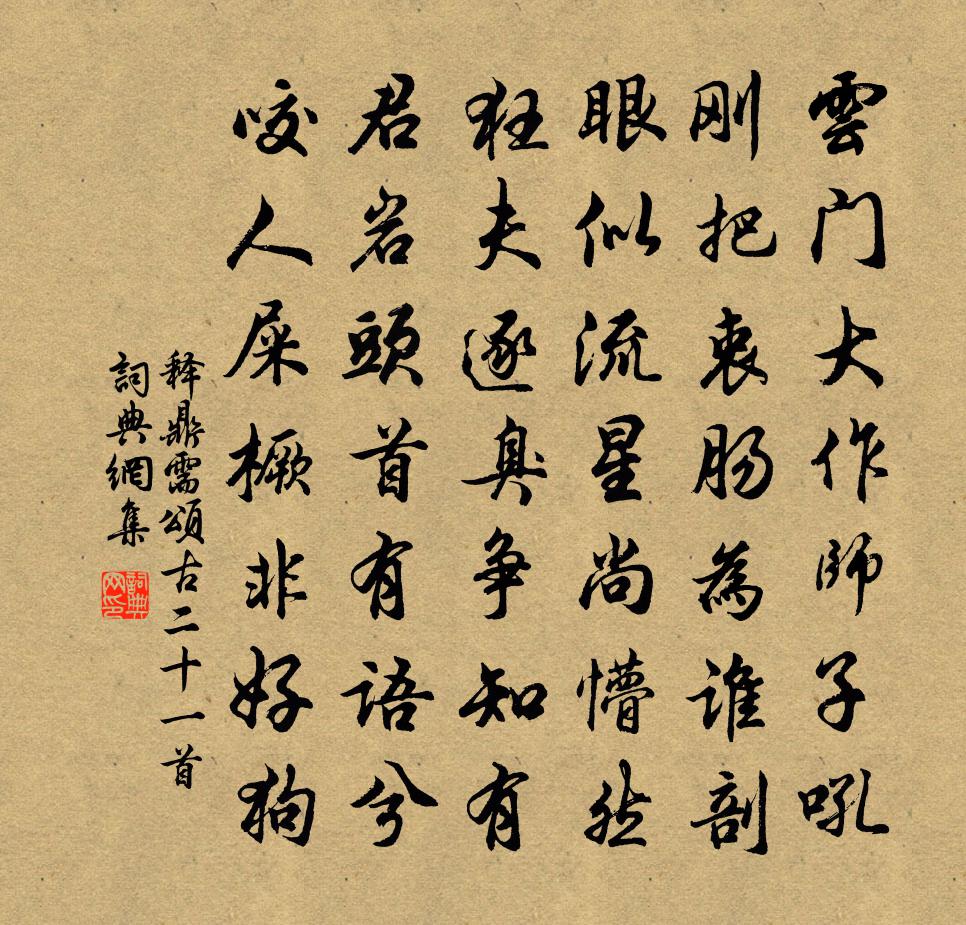 雲门大作师子吼
刚把衷肠為谁剖
眼似流星尚懵然
狂夫逐臭争知有
君岩頭首有语兮
咬人屎橛非好狗
释鼎需頌古二十一首
詞典網集
詞典网印